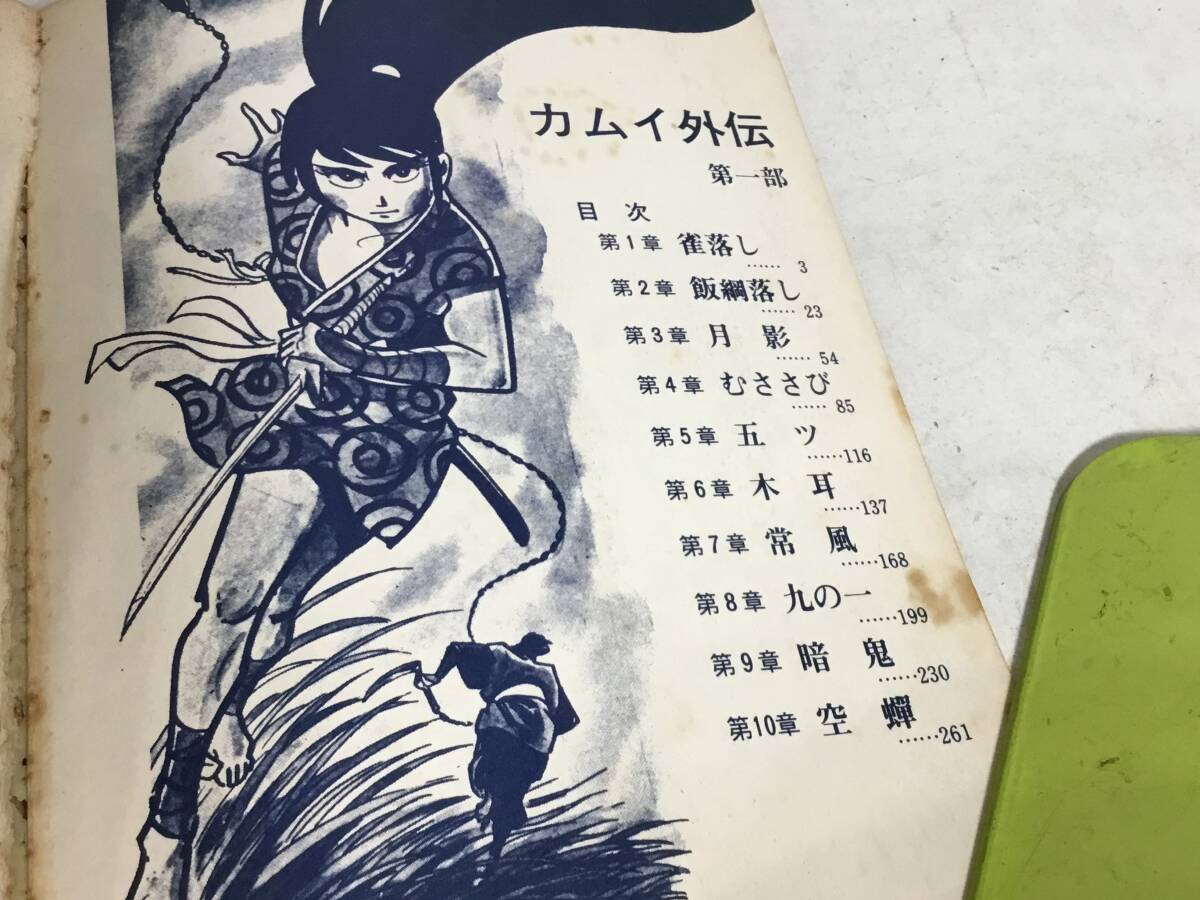 カムイ外伝
第一部
目次
第1章 雀落し ……3
第2章 飯綱落し ……23
第3章 月影 ……54
第4章 むささび ……85
第5章 五ツ ……116
第6章 木耳 ……137
第7章 常風 ……168
第8章 九の一 ……199
第9章 暗鬼 ……230
第10章 空蟬 ……261